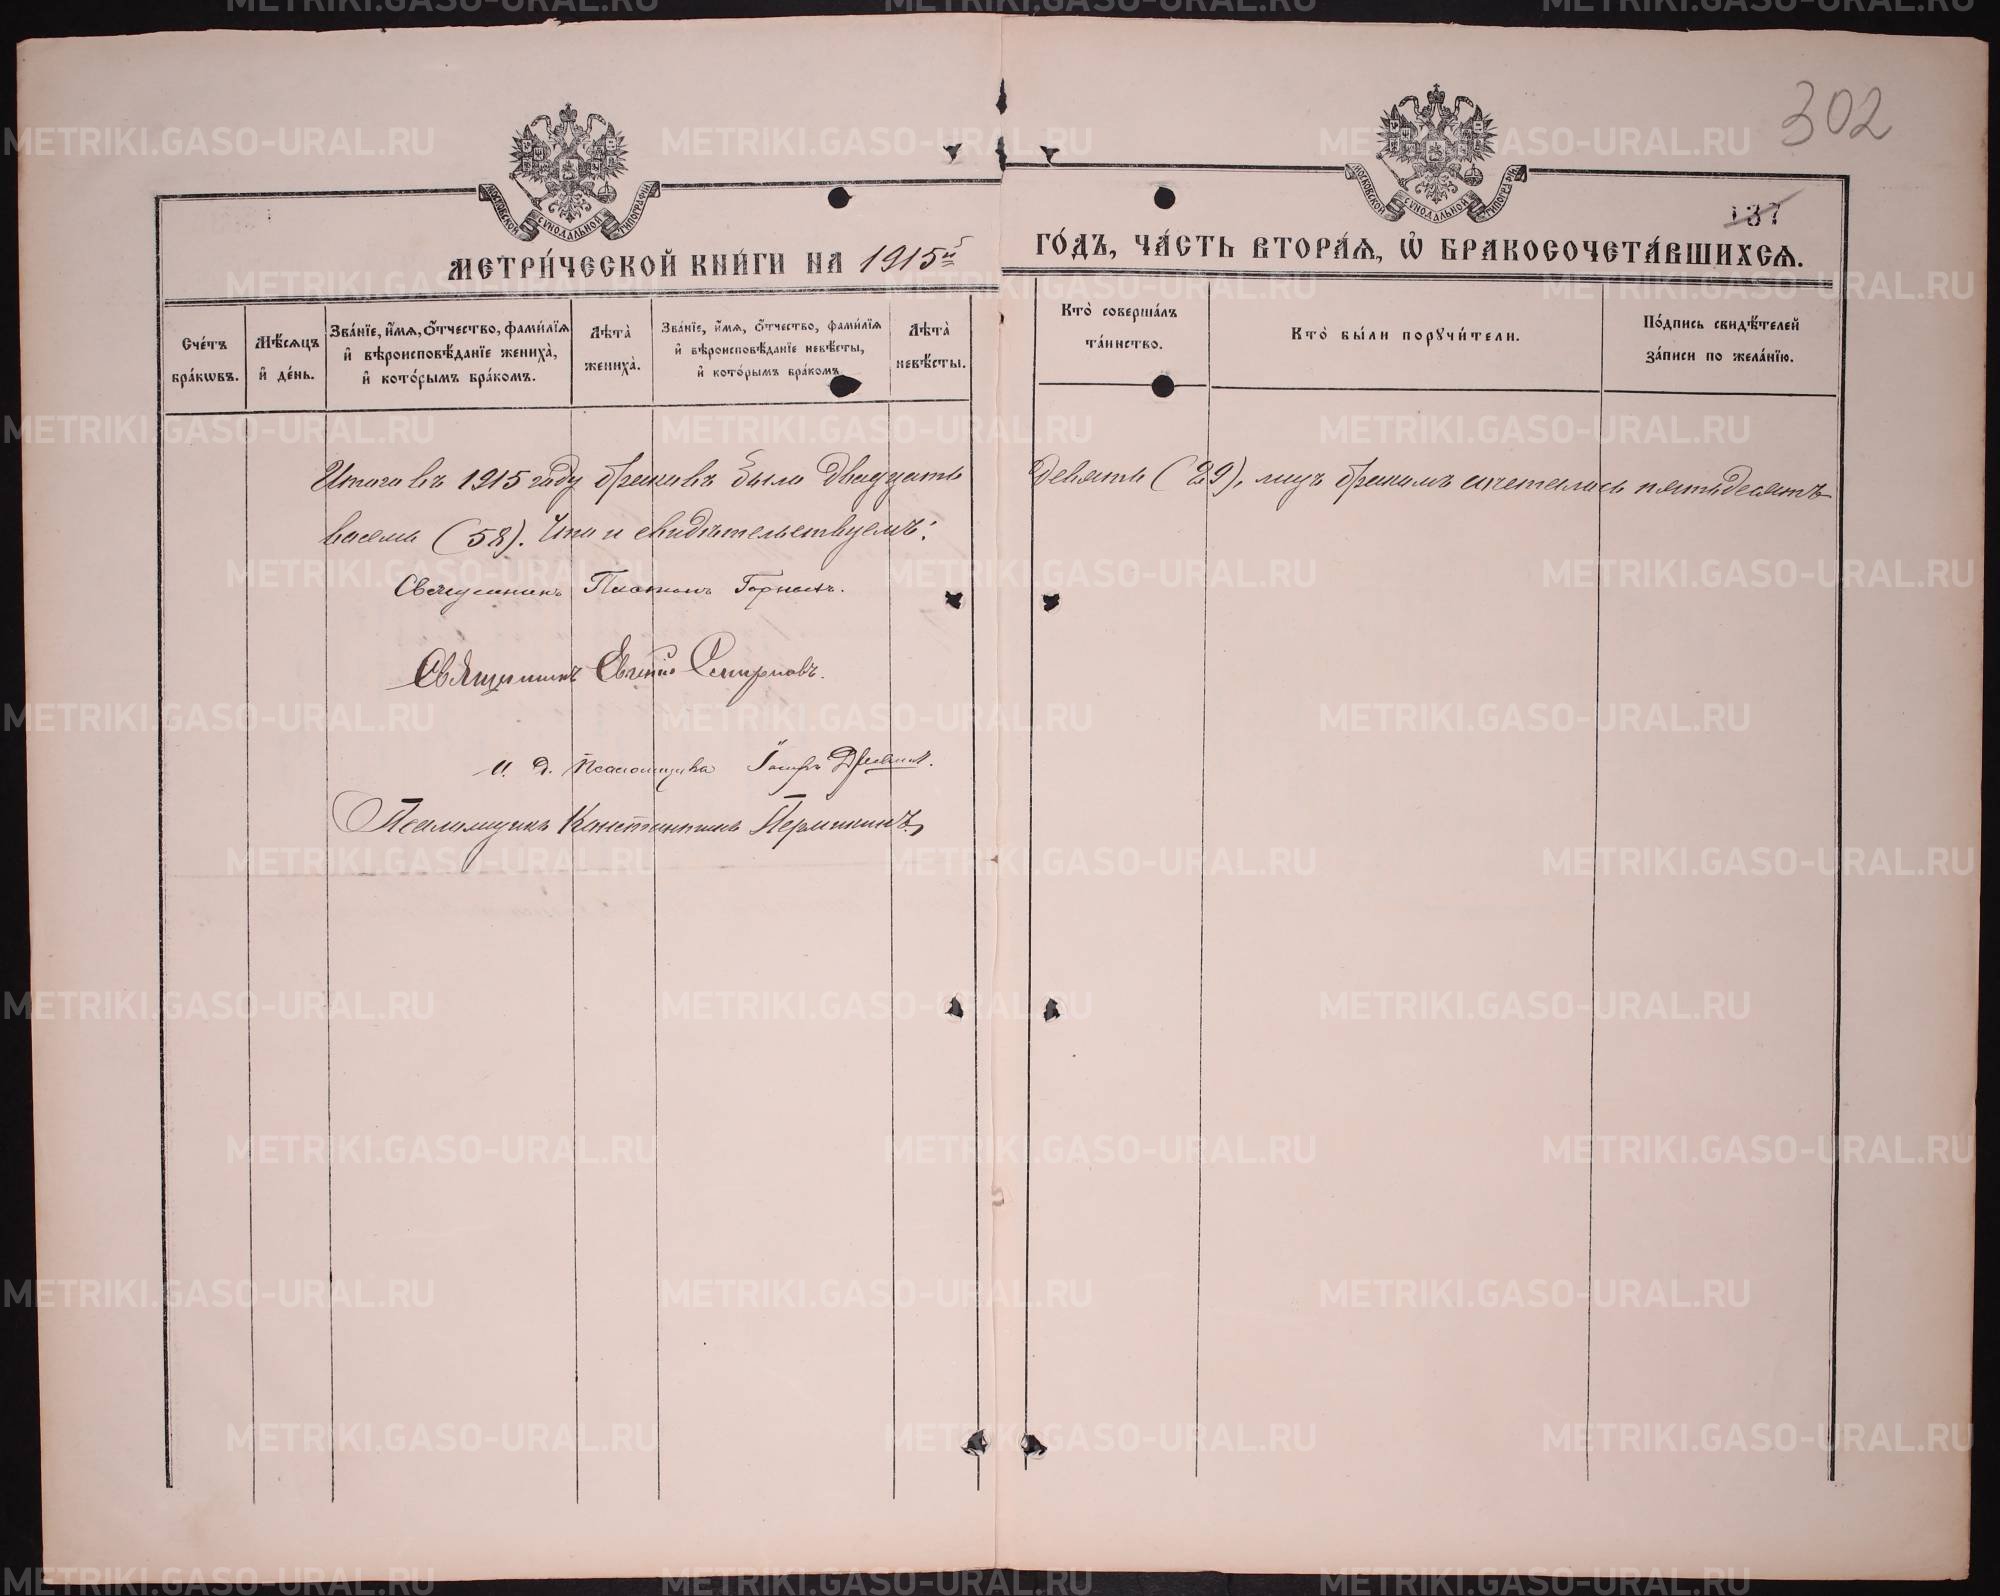 302
137
МОСКОВСКОЙ СѴНОДАЛЬНОЙ ТИПОГРАФІИ
МОСКОВСКОЙ СѴНОДАЛЬНОЙ ТИПОГРАФІИ
МЕТРИ́ЧЕСКОЙ КНИ́ГИ НА 1915й ГО́ДЪ, ЧА́СТЬ ВТОРА́Ѧ, Ѡ҆ БРАКОСОЧЕТА́ВШИХСѦ.
Сче́тъ бра́кѡвъ.
Мѣ́сѧцъ и҆ де́нь.
Зва́нїе, и҆́мѧ, ѻ҆́тчество, фами́лїѧ и҆ вѣроисповѣ́данїе жениха̀, и҆ кото́рымъ бра́комъ.
Лѣта̀ жениха̀.
Зва́нїе, и҆́мѧ, ѻ҆́тчество, фами́лїѧ и҆ вѣроисповѣ́данїе невѣ́сты, и҆ кото́рымъ бра́комъ.
Лѣта̀ невѣ́сты.
Кто̀ соверша́лъ та́инство.
Кто̀ бы́ли порꙋчи́тели.
По́дпись свидѣ́телей за́писи по жела́нїю.
Итого въ 1915 году браковъ было двадцать девять (29), лицъ бракомъ сочеталось пятьдесятъ
восемь (58). Что и свидѣтельствуемъ:
Священникъ Платонъ Горныхъ.
Священникъ Евгеній Смирновъ.
И. д. Псаломщика
Псаломщикъ Константинъ Пермикинъ.
METRIKI.GASO-URAL.RU